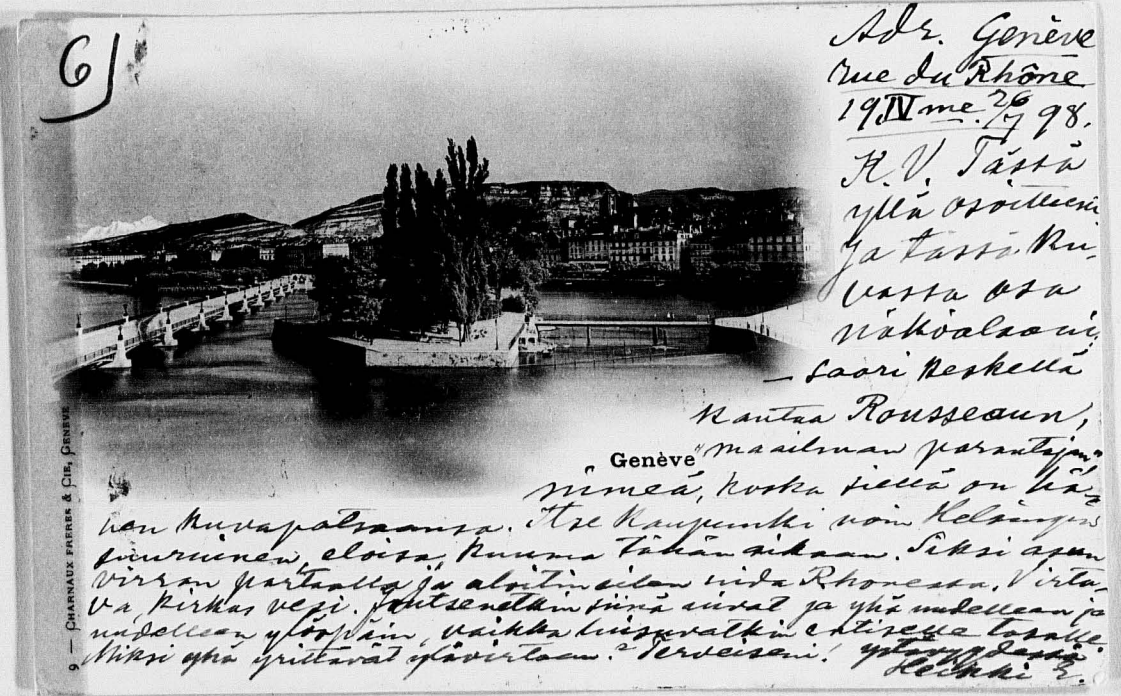 6)
Adr. Genève
rue du Rhône
19 IVme. 26/7 98.
K. V. Tässä
yllä osoitteeni
ja tässä ku-
vassa osa
näköalaani,
— saari keskellä
kantaa Rousseaun,
"maailman parantajan"
nimeä, koska siellä on hä-
nen kuvapatsaansa. Itse kaupunki noin Helsingin
suuruinen, eloisa, kuuma tähän aikaan. Siksi asun
virran partaalla ja aloitin eilen uida Rhonessa. Virta-
va, kirkas vesi. Joutsenetkin siinä uivat ja yhä uudelleen ja
uudelleen ylöspäin, vaikka liusuvatkin entiselle tasalle.
Miksi yhä yrittävät ylävirtaan? Terveiseni! ystävyydessä
Heikki E.
Genève
9 — CHARNAUX FRÈRES & CIE, GENÈVE